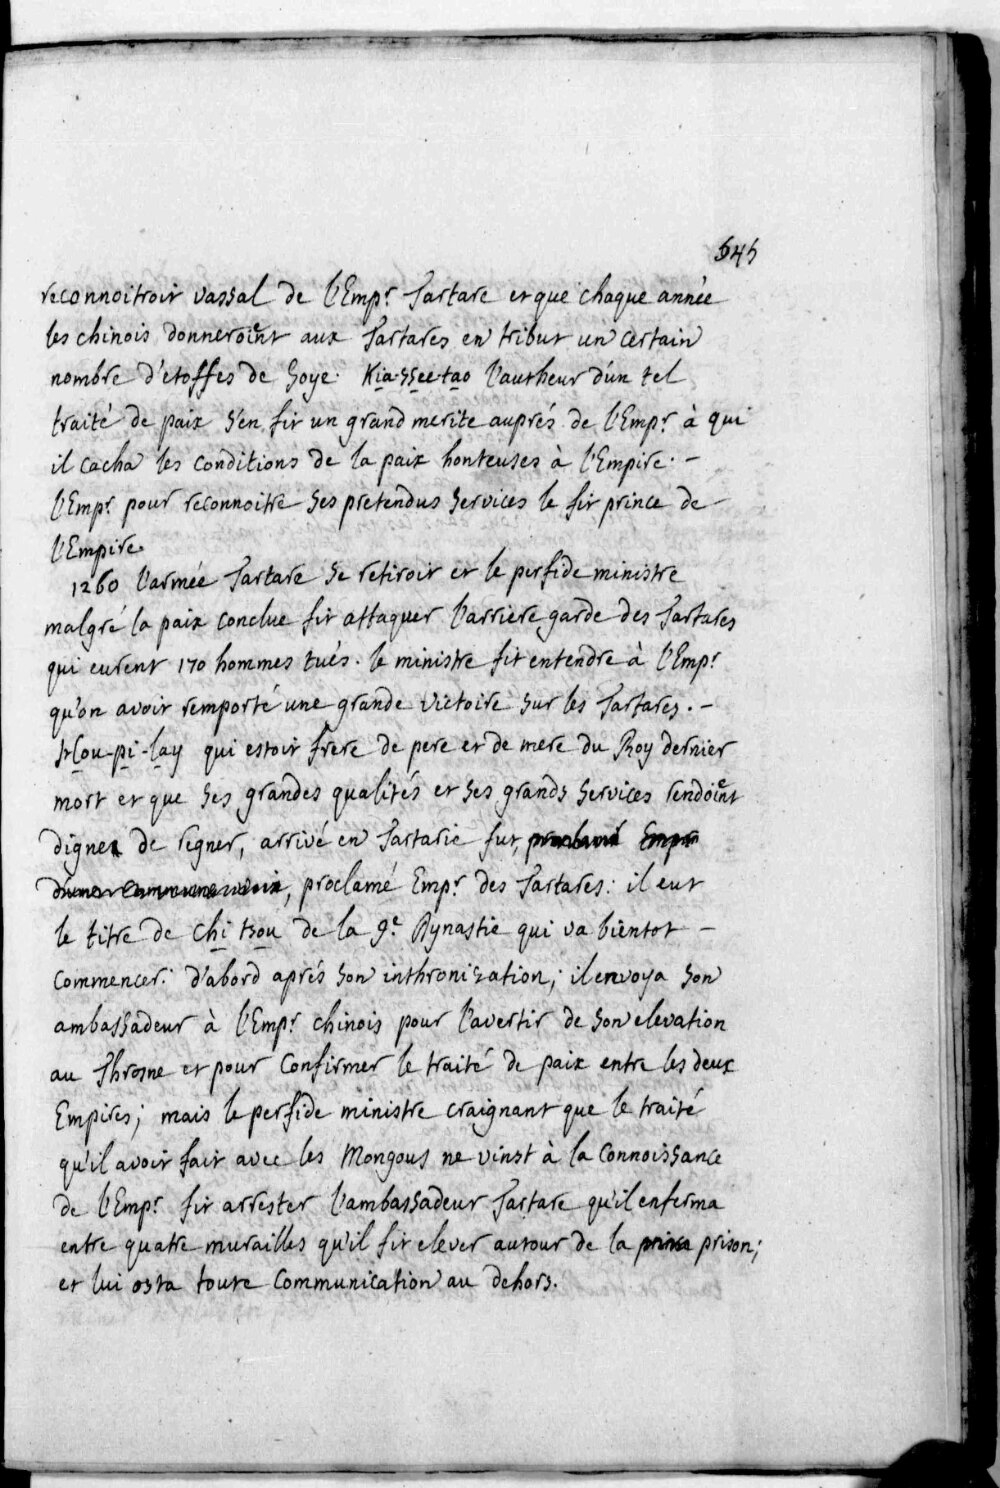 545
reconnoitroit vassal de l'Emp.r Tartare et que chaque année
les chinois donneroient aux Tartares en tribut un certain
nombre d'etoffes de soye. Kia-ssee-tao l'autheur d'un tel
traité de paix s'en fit un grand merite auprés de l'Emp.r à qui
il cacha les conditions de la paix honteuses à l'Empire. –
l'Emp.r pour reconnoitre ses pretendus services le fit prince de
l'Empire.
1260 l'armée Tartare se retiroit et le perfide ministre
malgré la paix conclue fit attaquer l'arriere garde des Tartares
qui eurent 170 hommes tués. le ministre fit entendre à l'Emp.r
qu'on avoit remporté une grande victoire sur les Tartares. –
Hou-pi-lay qui estoit frere de pere et de mere du Roy dernier
mort et que ses grandes qualités et ses grands services rendoient
digne de regner, arrivé en Tartarie fut, proclamé Empr
d'une commune voix, proclamé Emp.r des Tartares: il eut
le titre de chi tsou de la 9.e Dynastie qui va bientot –
commencer. d'abord aprés son inthronization; il envoya son
ambassadeur à l'Emp.r chinois pour l'avertir de son elevation
au Throsne et pour confirmer le traité de paix entre les deux
Empires; mais le perfide ministre craignant que le traité
qu'il avoit fait avec les Mongous ne vinst à la connoissance
de l'Emp.r fit arrester l'ambassadeur Tartare qu'il enferma
entre quatre murailles qu'il fit elever autour de la prison;
et lui osta toute communication au dehors.